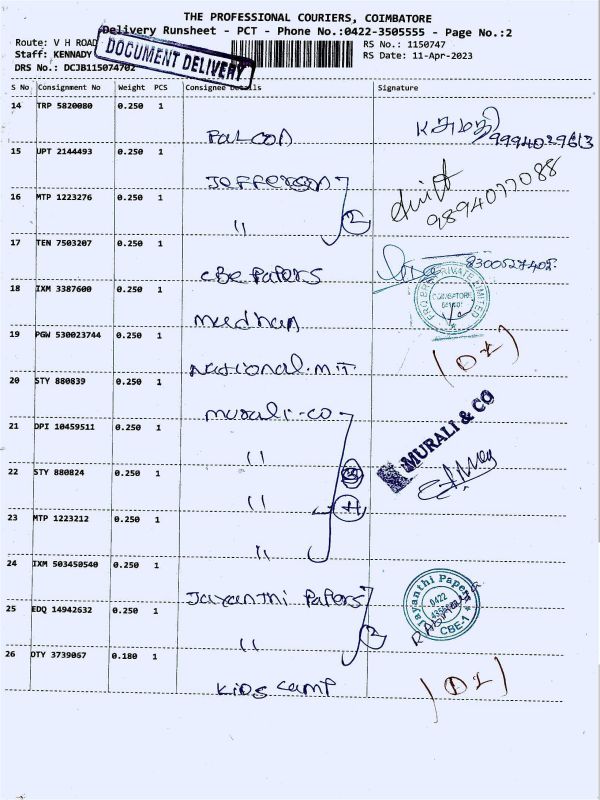 THE PROFESSIONAL COURIERS, COIMBATORE
Delivery Runsheet - PCT - Phone No.:0422-3505555 - Page No.:2
Route: V H ROAD
RS No.: 1150747
Staff: KENNADY
RS Date: 11-Apr-2023
DRS No.: DCJB115074702
DOCUMENT DELIVERY
S No Consignment No Weight PCS Consignee Details Signature
14 TRP 5820080 0.250 1
Falcon
9994029613
15 UPT 2144493 0.250 1
Jefferson
16 MTP 1223276 0.250 1
9894077088
" 2
17 TEN 7503207 0.250 1
CBE Papers
18 IXM 3387600 0.250 1
PRIVATE LIMITED
COIMBATORE
Muedhan
19 PGW 530023744 0.250 1
National.M.T
20 STY 880839 0.250 1
Murali-co
MURALI & CO
21 DPI 10459511 0.250 1
"
22 STY 880824 0.250 1
" 4
23 MTP 1223212 0.250 1
"
24 IXM 503450540 0.250 1
Jayanthi Papers
Jayanthi Papers
0422
CBE-1
25 EDQ 14942632 0.250 1
" 2
26 OTY 3739067 0.180 1
Kids camp